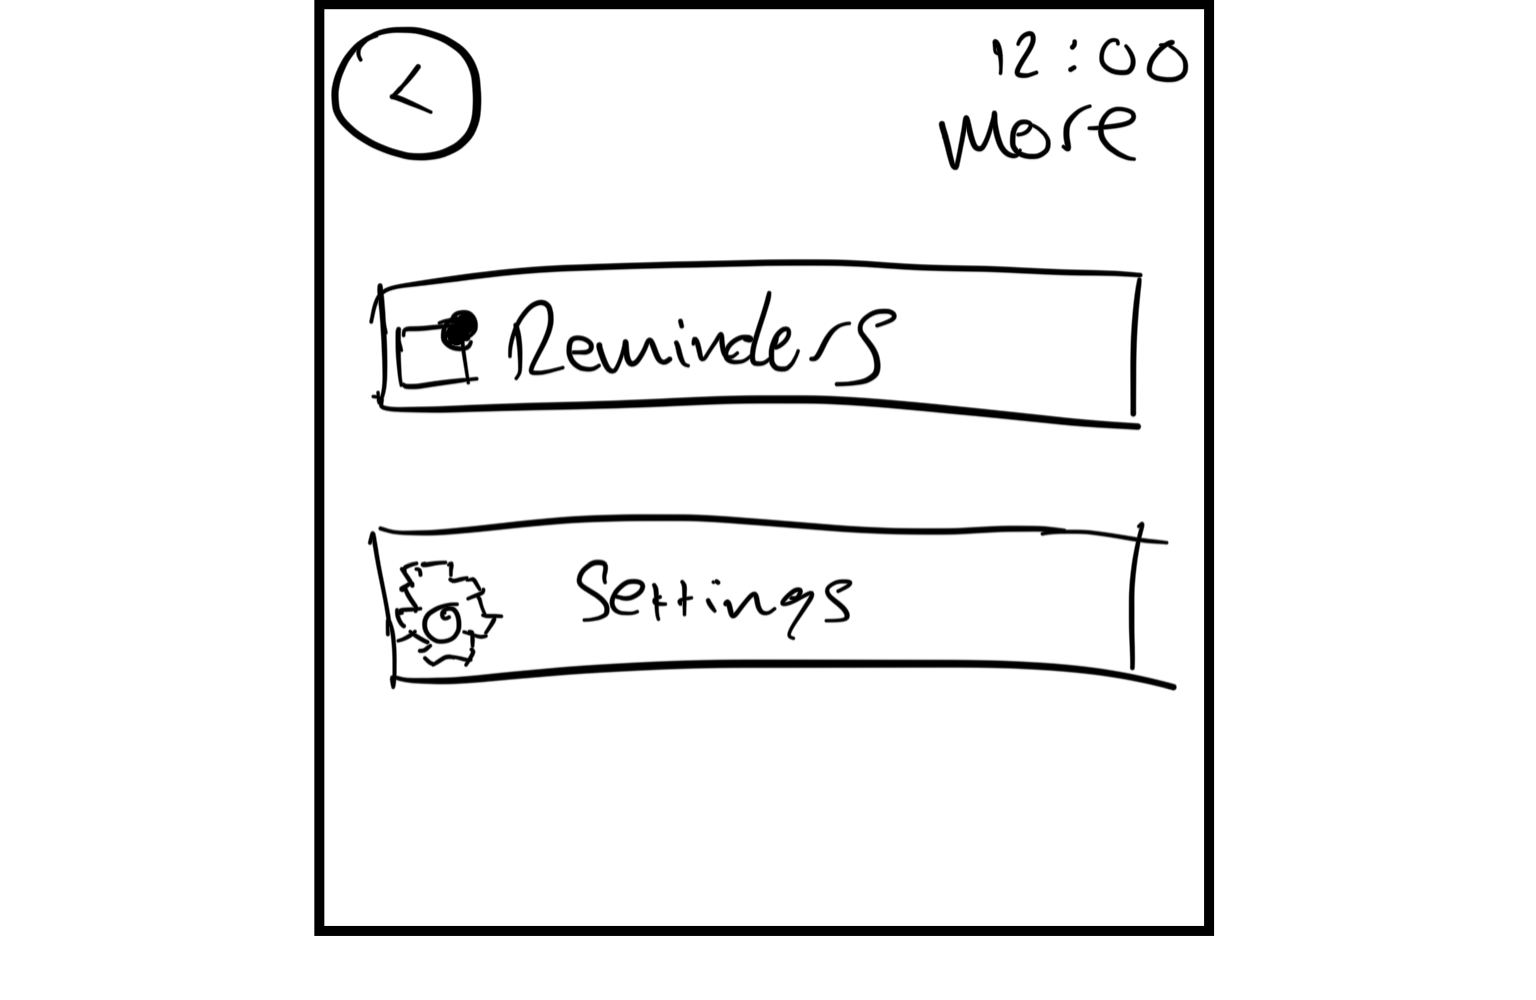 12:00
more
Reminders
Settings